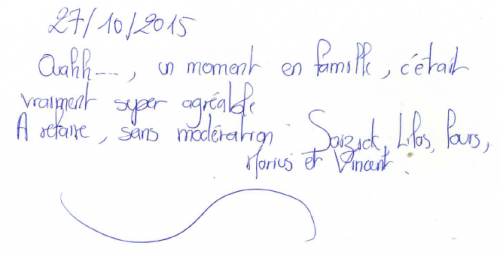 27/10/2015
Ouahh...., un moment en famille, c'était
vraiment super agréable
A refaire, sans modération. Soizick, Lilos,
Marius et Vincent.